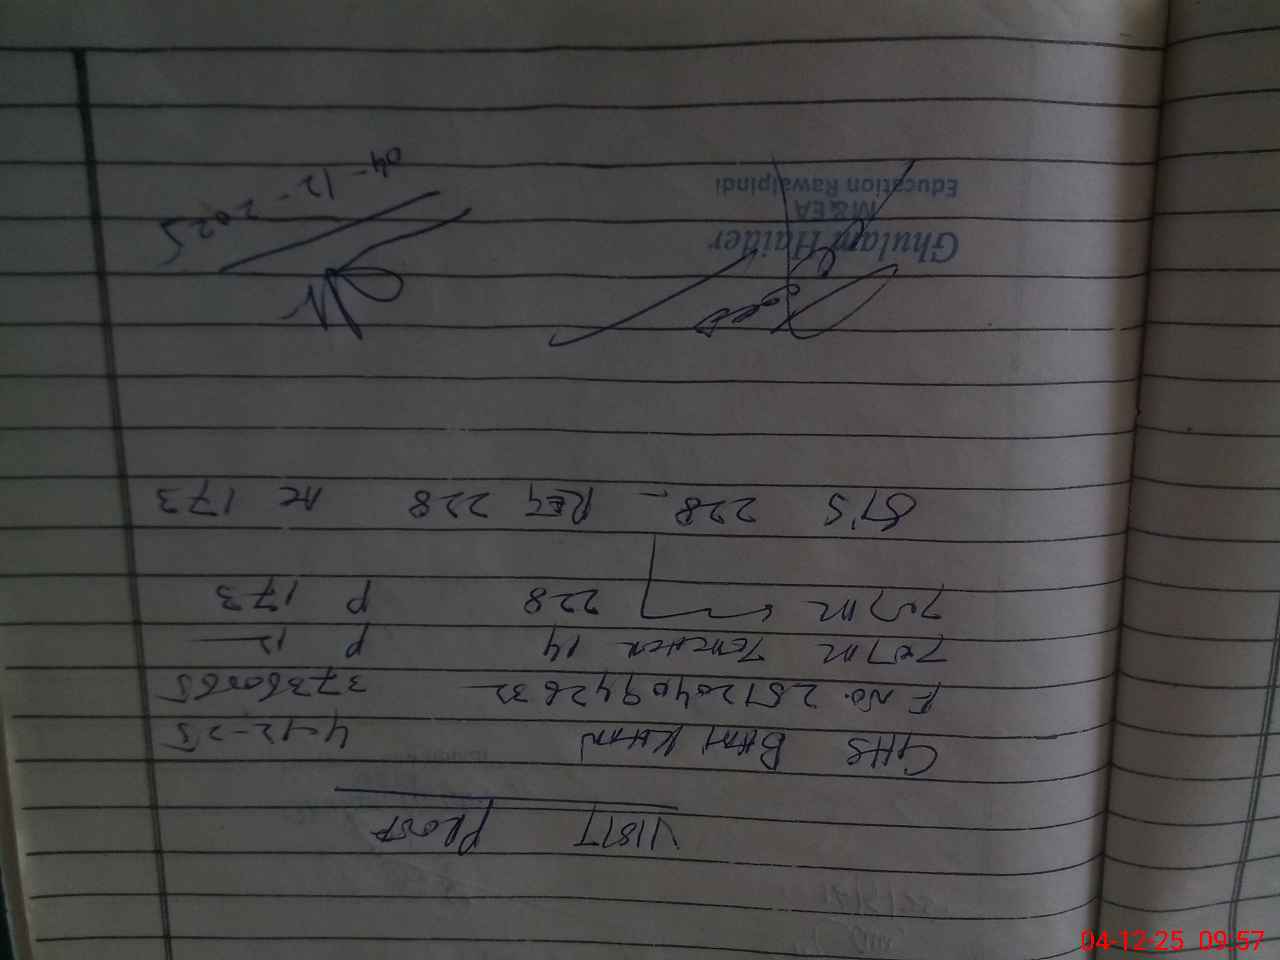 VISIT PROOF
GHS BHAI KHAN 4-12-25
E No. 2512040942632 37360265
TOTAL TEACHER 14 P 12
TOTAL 228 P 173
ST'S 228 - REG 228 AC 173
Ghulam Haider
M&EA
Education Rawalpindi
04-12-2025
04-12-25 09:57